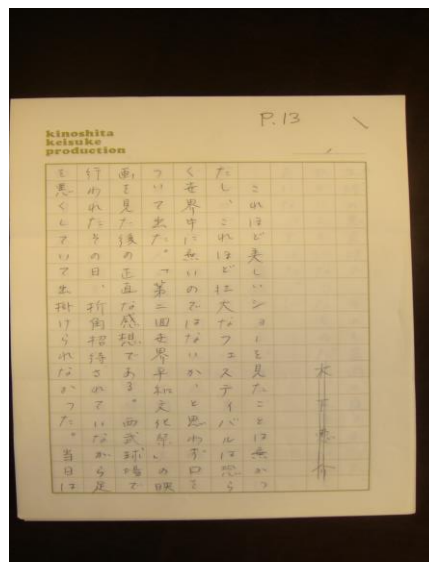 P.13
kinoshita
keisuke
production
木下惠介
これほど美しいショーを見たことは無かつ
たし、これほど壮大なフェスティバルは恐ら
く世界中に無いのではないか、と思わず口を
ついて出た。「第二回世界平和文化祭」の映
画を見た後の正直な感想である。西武球場で
行われたその日、折角招待されていながら足
を悪くしていて出掛けられなかつた。当日は